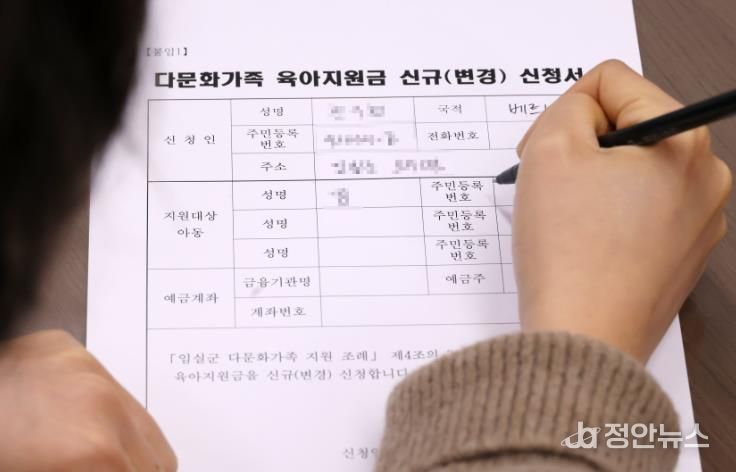 [붙임1]
다문화가족 육아지원금 신규(변경) 신청서
신 청 인
성명
국적
베트
주민등록
번호
전화번호
주소
지원대상
아동
성명
주민등록
번호
성명
주민등록
번호
성명
주민등록
번호
예금계좌
금융기관명
예금주
계좌번호
「임실군 다문화가족 지원 조례」 제4조의
육아지원금을 신규(변경) 신청합니다
신청인
정안뉴스